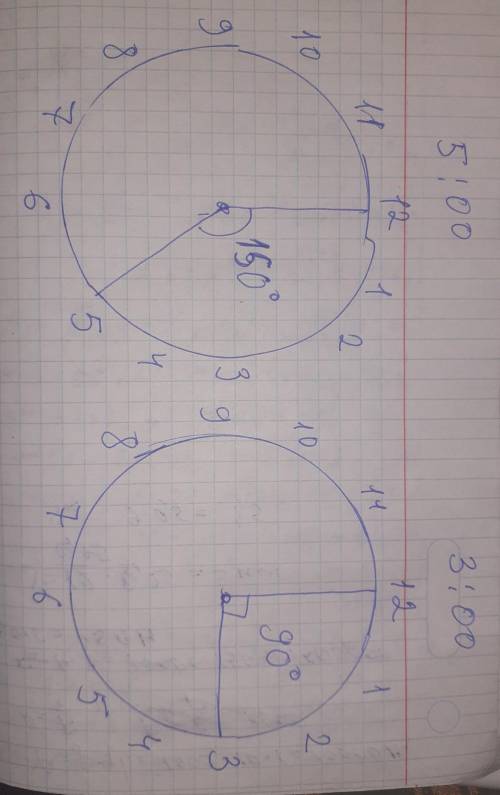 5:00
12
1
2
3
4
5
6
7
8
9
10
11
150°
3:00
12
1
2
3
4
5
6
7
8
9
10
11
90°